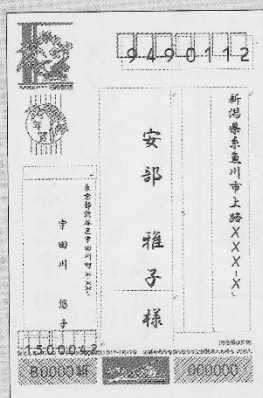 9490112
新潟県糸魚川市上路XXX-X
安部 雅子 様
東京都渋谷区宇田川町X-XX
宇田川 悠子
1500042
B0000組 000000